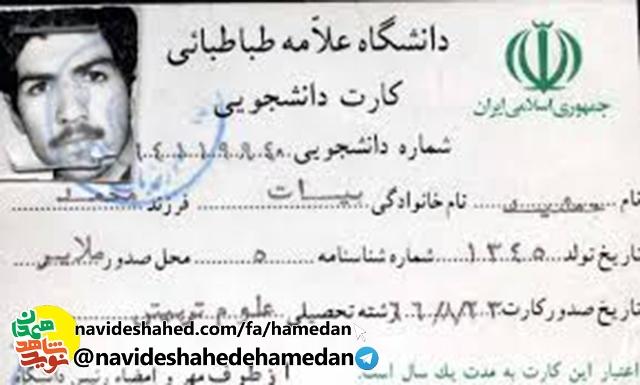 دانشگاه علاّمه طباطبائی
کارت دانشجویی
جمهوری اسلامی ایران
شماره دانشجویی
نام نام خانوادگی بیات فرزند محمد
تاریخ تولد ۱۳۴۵ شماره شناسنامه ۵ محل صدور ملایر
تاریخ صدور کارت ۶۶/۸/۲۳ رشته تحصیلی علوم تربیتی
اعتبار این کارت به مدت یك سال است. از طرف مهر و امضاء رئیس دانشگاه
navideshahed.com/fa/hamedan
@navideshahedehamedan
نوید شاهد همدان